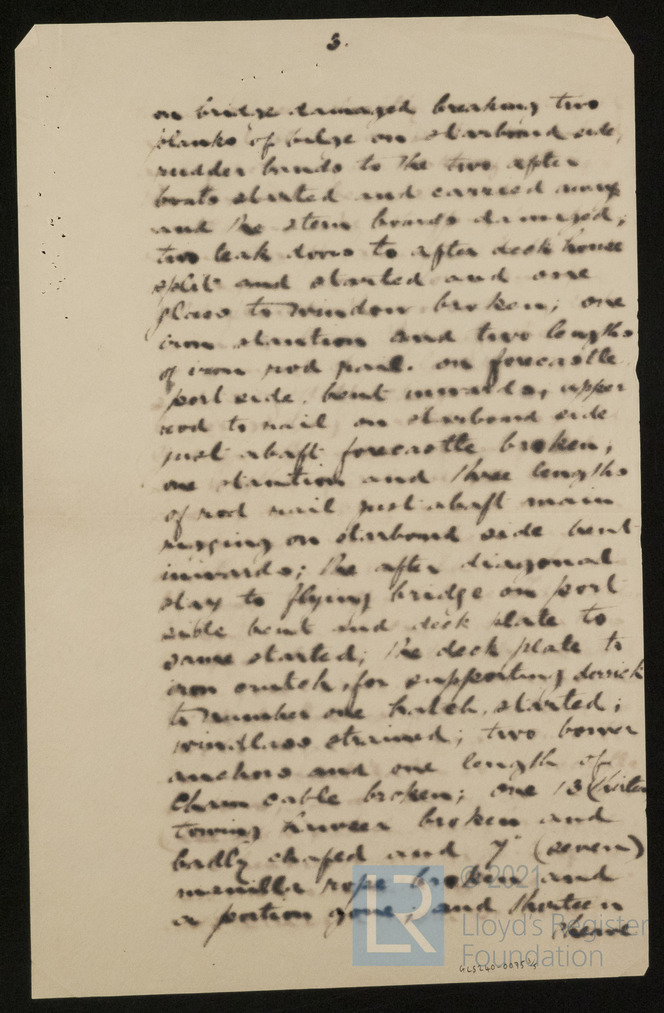 3.
on bridge damaged breaking two
planks of bilge on starboard side,
rudder bands to the two after
boats started and carried away
and the stern boards damaged;
two teak doors to after deck house
split and started and one
glass to window broken; one
iron stantion and two lengths
of iron rod rail. on forecastle
port side. bent inwards, upper
rod to rail on starboard side
just abaft forecastle broken,
one stantion and three lengths
of rod rail just abaft main
rigging on starboard side bent
inwards; the after diagonal
stay to flying bridge on port
side bent and deck plate to
same started; the deck plate to
iron crutch for supporting derrick
to number one hatch, started;
windlass strained; two bower
anchors and one length of
chain cable broken; one 13 (thirteen
towing hawser broken and
badly chafed and 7" (seven)
manilla rope broken and
a portion gone; and thirteen
sheave
© 2021
Lloyd's Register
Foundation
LR
GLS240-0075